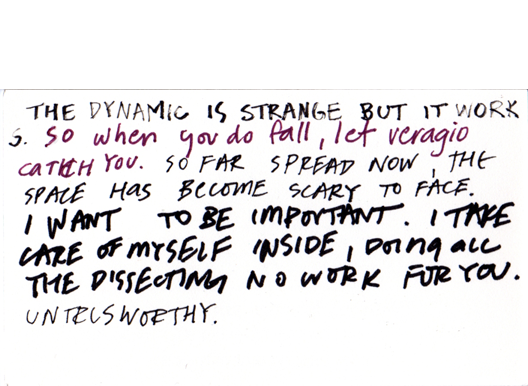 THE DYNAMIC IS STRANGE BUT IT WORK
S. So when you do fall, let veragio
CATCH YOU. SO FAR SPREAD NOW, THE
SPACE HAS BECOME SCARY TO FACE.
I WANT TO BE IMPORTANT. I TAKE
CARE OF MYSELF INSIDE, DOING ALL
THE DISSECTING NO WORK FOR YOU.
UNTRUSWORTHY.